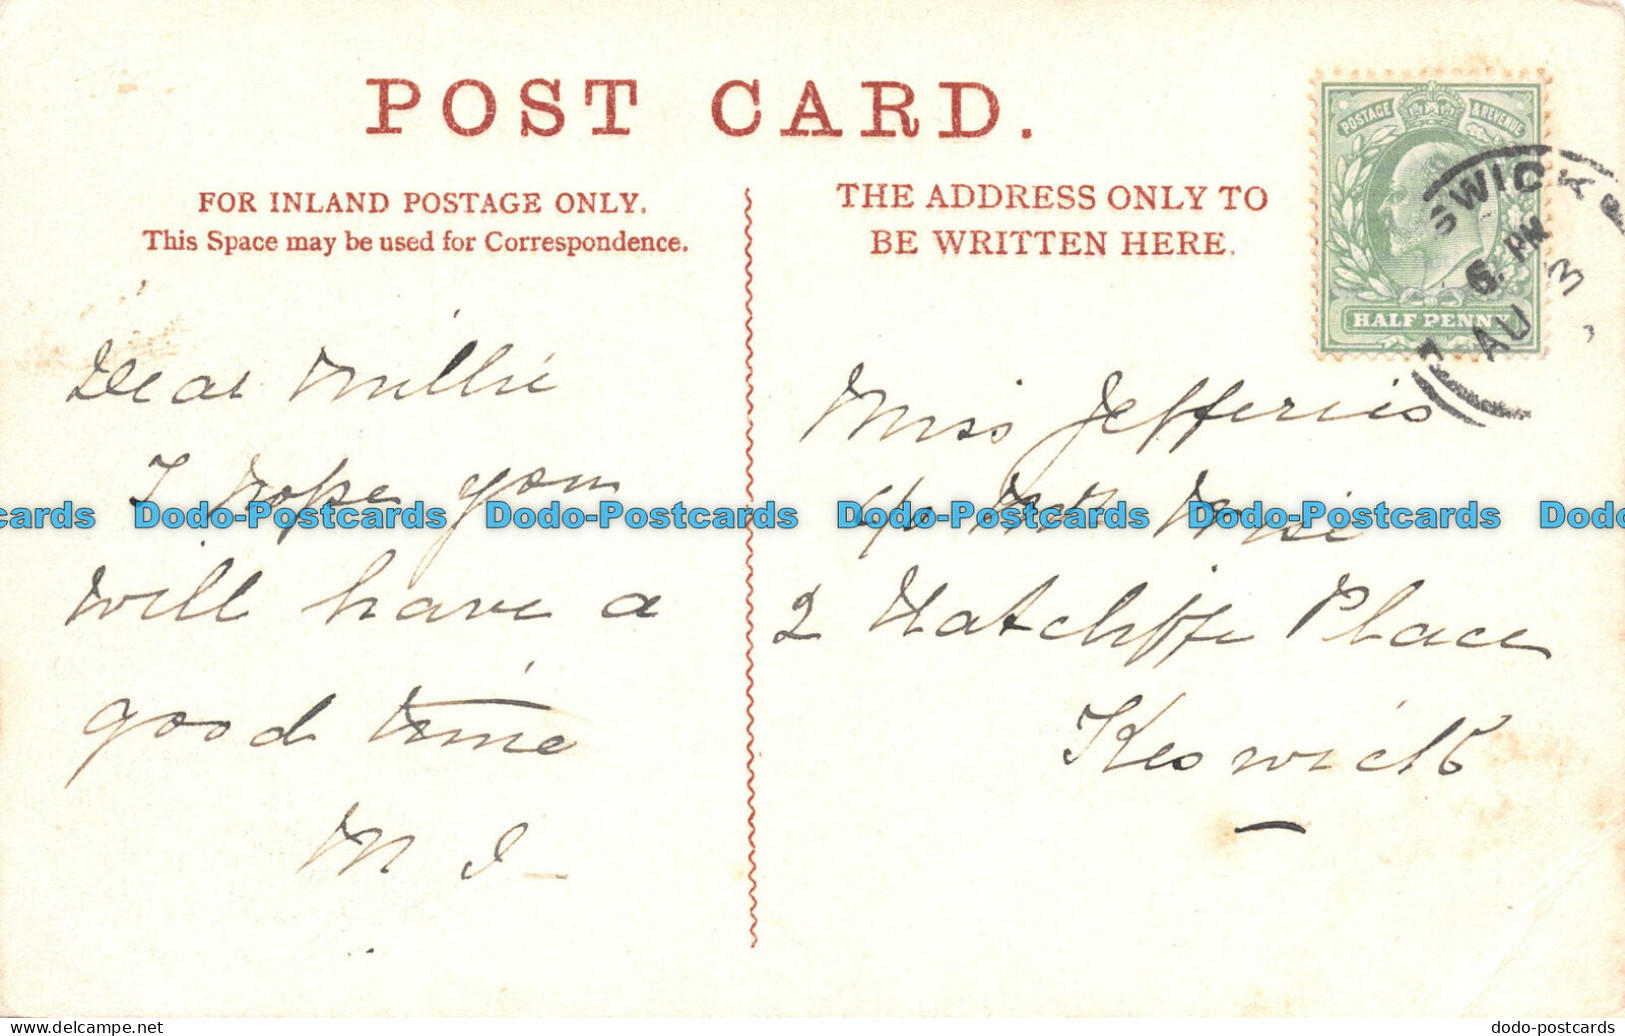 POST CARD.
FOR INLAND POSTAGE ONLY.
This Space may be used for Correspondence.
THE ADDRESS ONLY TO
BE WRITTEN HERE.
POSTAGE & REVENUE
HALF PENNY
SWICK
6. PM
AU 3
Dear Millie
I hope you
will have a
good time
M J
Miss Jefferies
c/o
2 Ratcliffe Place
Keswick
cards Dodo-Postcards Dodo-Postcards Dodo-Postcards Dodo-Postcards Dodo
Visit our Delcampe Store
dodo-postcards